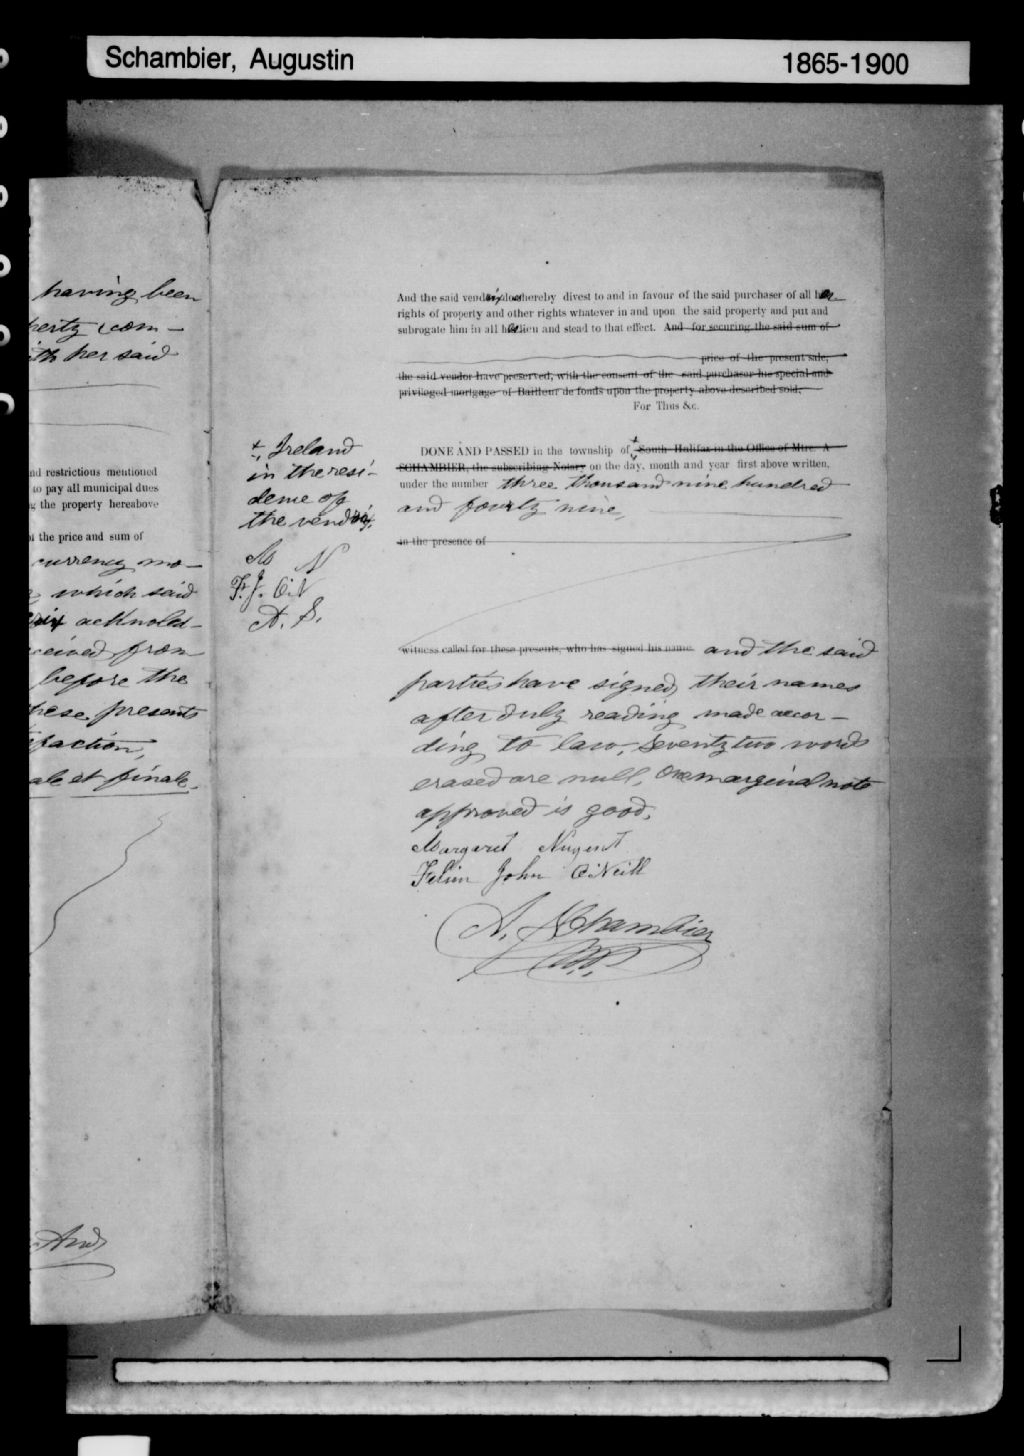 Schambier, Augustin 1865-1900
having been
perty com-
ith her said
nd restrictions mentioned
to pay all municipal dues
g the property hereabove
of the price and sum of
currency mo-
which said
rix acknoled-
ceived from
before the
these presents
faction,
ale et finale.
And
And the said vendrix does hereby divest to and in favour of the said purchaser of all her
rights of property and other rights whatever in and upon the said property and put and
subrogate him in all her lieu and stead to that effect. And for securing the said sum of
price of the present sale,
the said vendor have preserved, with the consent of the said purchaser his special and
privileged mortgage of Bailleur de fonds upon the property above described sold.
For Thus &c.
DONE AND PASSED in the township of + South Halifax in the Office of Mtre. A
SCHAMBIER, the subscribing Notary on the day, month and year first above written,
under the number three thousand nine hundred
and fourty nine,
in the presence of
+, Ireland
in the resi-
dence of
the vendrix,
M N
F. J. O.N
A. S.
witness called for these presents, who has signed his name and the said
parties have signed, their names
after duly reading made accor-
ding to law, Seventy two words
erased are null, One marginal note
approved is good.
Margaret Nugent
Felim John O'Neill
A. Schambier
N.P.